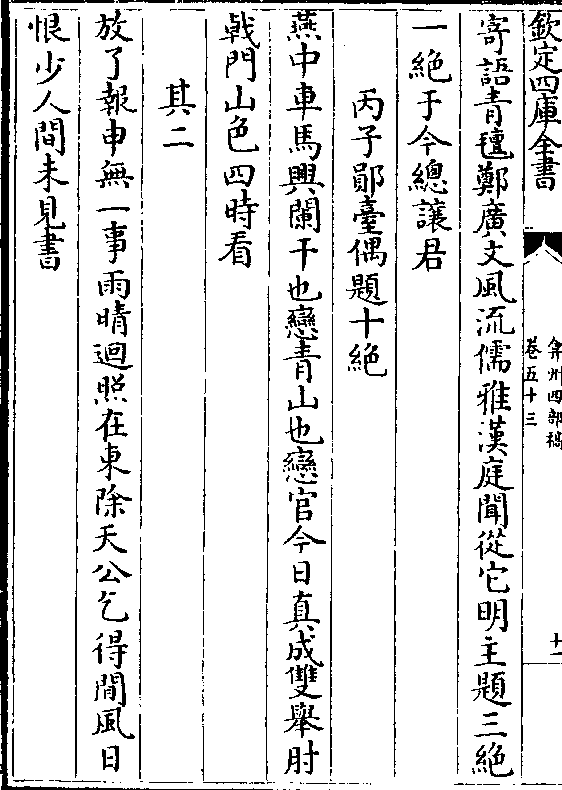 欽定四庫全書
弇州四部稿
卷五十三
十一
寄語青氊鄭廣文風流儒雅漢庭聞從它明主題三絶
一絶于今總讓君
丙子鄖臺偶題十絶
燕中車馬興闌干也戀青山也戀官今日真成雙舉肘
戟門山色四時看
其二
放了報申無一事雨晴迴照在東除天公乞得閒風日
恨少人間未見書